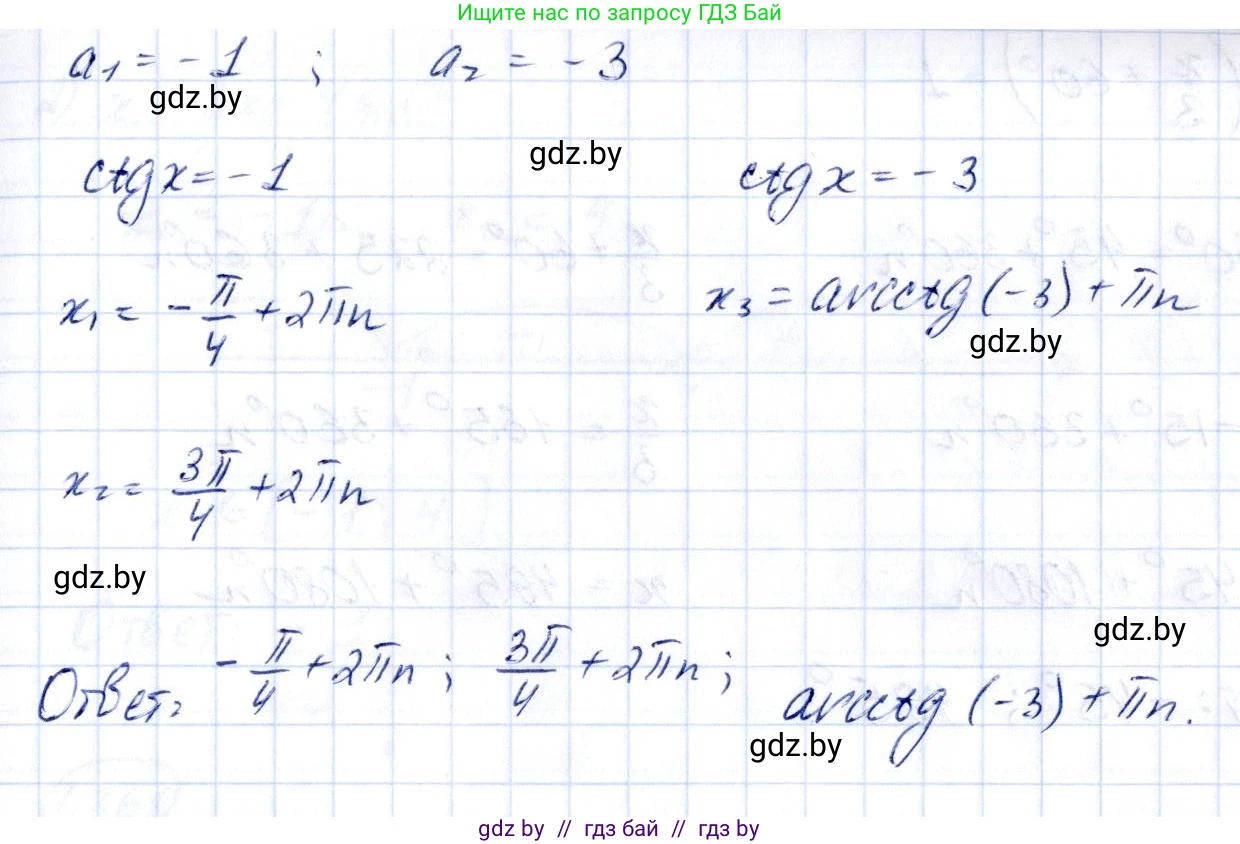 Ищите нас по запросу ГДЗ Бай
a₁ = -1 ; a₂ = -3
gdz.by
gdz.by
ctg x = -1 ctg x = -3
x₁ = -π/4 + 2πn x₃ = arcctg (-3) + πn
gdz.by
x₂ = 3π/4 + 2πn
gdz.by
gdz.by
Ответ: -π/4 + 2πn ; 3π/4 + 2πn ; arcctg (-3) + πn.
gdz.by
gdz by // гдз бай // гдз by